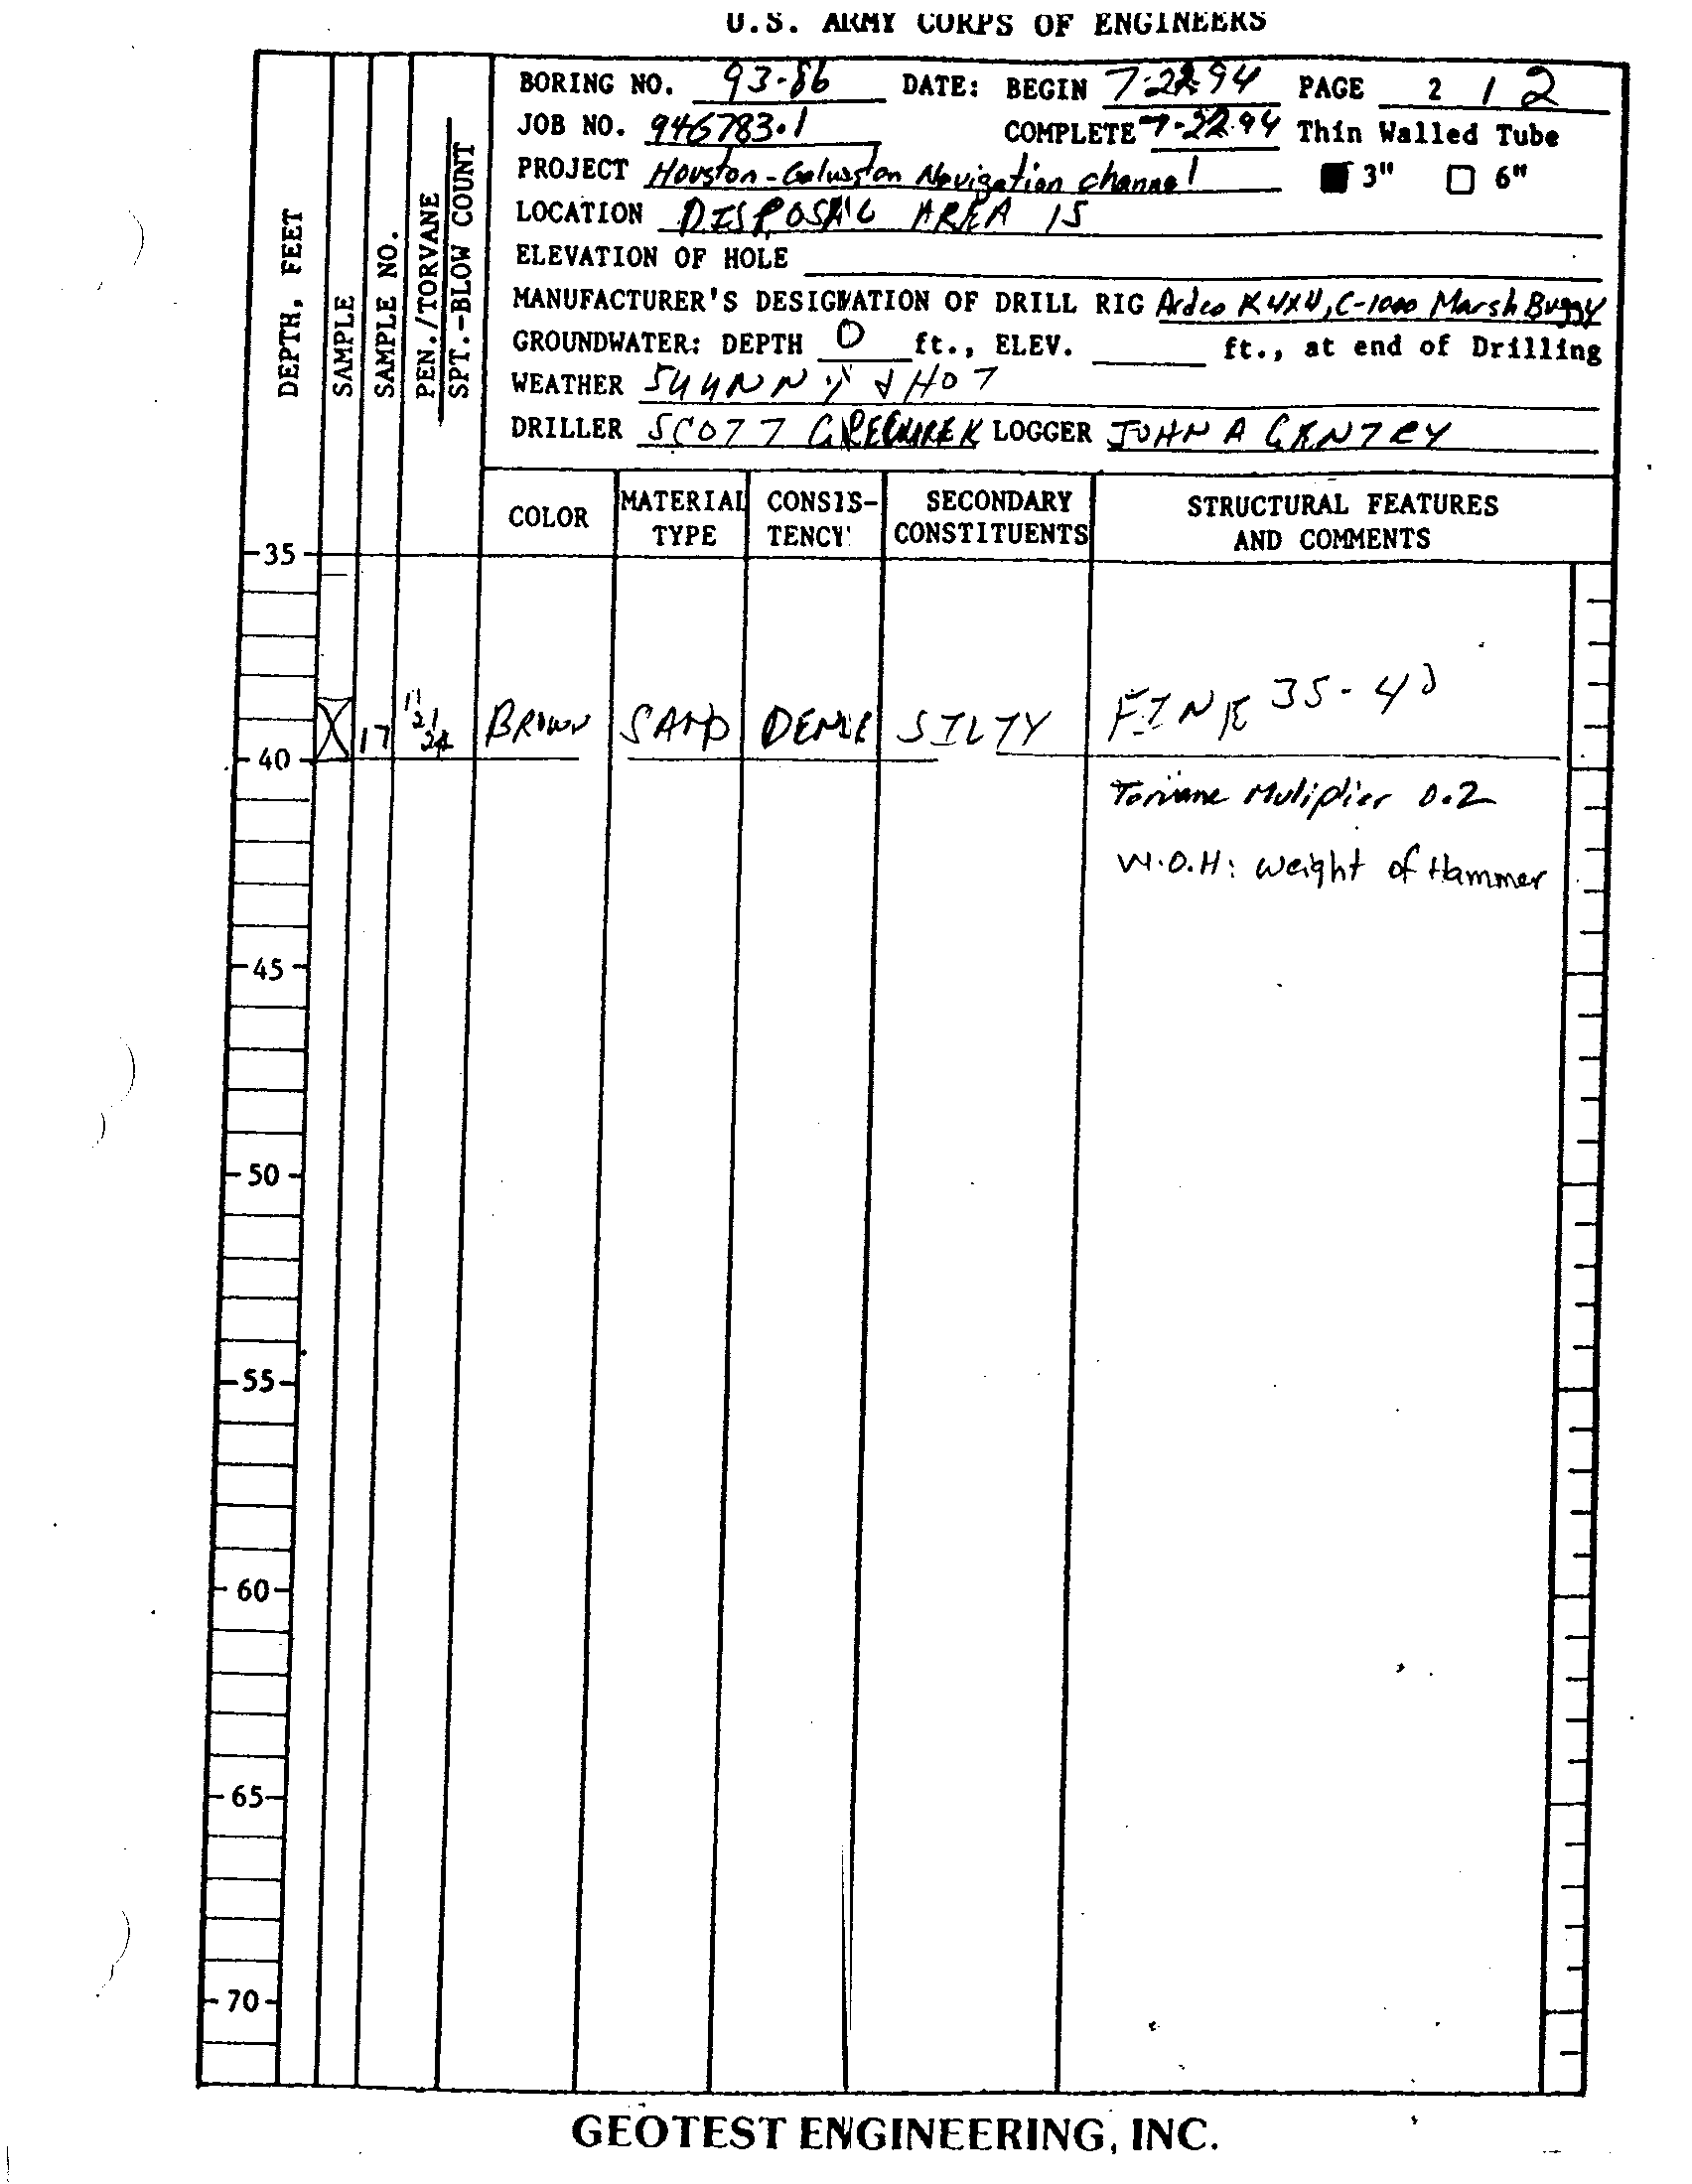 U.S. ARMY CORPS OF ENGINEERS
BORING NO. 93-86 DATE: BEGIN 7-22-94 PAGE 2 / 2
JOB NO. 946783.1 COMPLETE 7-22-94 Thin Walled Tube
PROJECT Houston-Galveston Navigation channel 3" 6"
LOCATION DISPOSAL AREA 15
ELEVATION OF HOLE
MANUFACTURER'S DESIGNATION OF DRILL RIG Ardco K 4x4, C-1000 Marsh Buggy
GROUNDWATER: DEPTH 0 ft., ELEV. ft., at end of Drilling
WEATHER SUNNY & HOT
DRILLER SCOTT LOGGER JOHN A GENTRY
DEPTH, FEET
SAMPLE
SAMPLE NO.
PEN./TORVANE
SPT.-BLOW COUNT
COLOR MATERIAL TYPE CONSIS-TENCY SECONDARY CONSTITUENTS STRUCTURAL FEATURES AND COMMENTS
35
17 11 21 24 BROWN SAND DENSE SILTY FINE 35-40
40
Torvane Muliplier 0.2
W.O.H: weight of Hammer
45
50
55
60
65
70
GEOTEST ENGINEERING, INC.